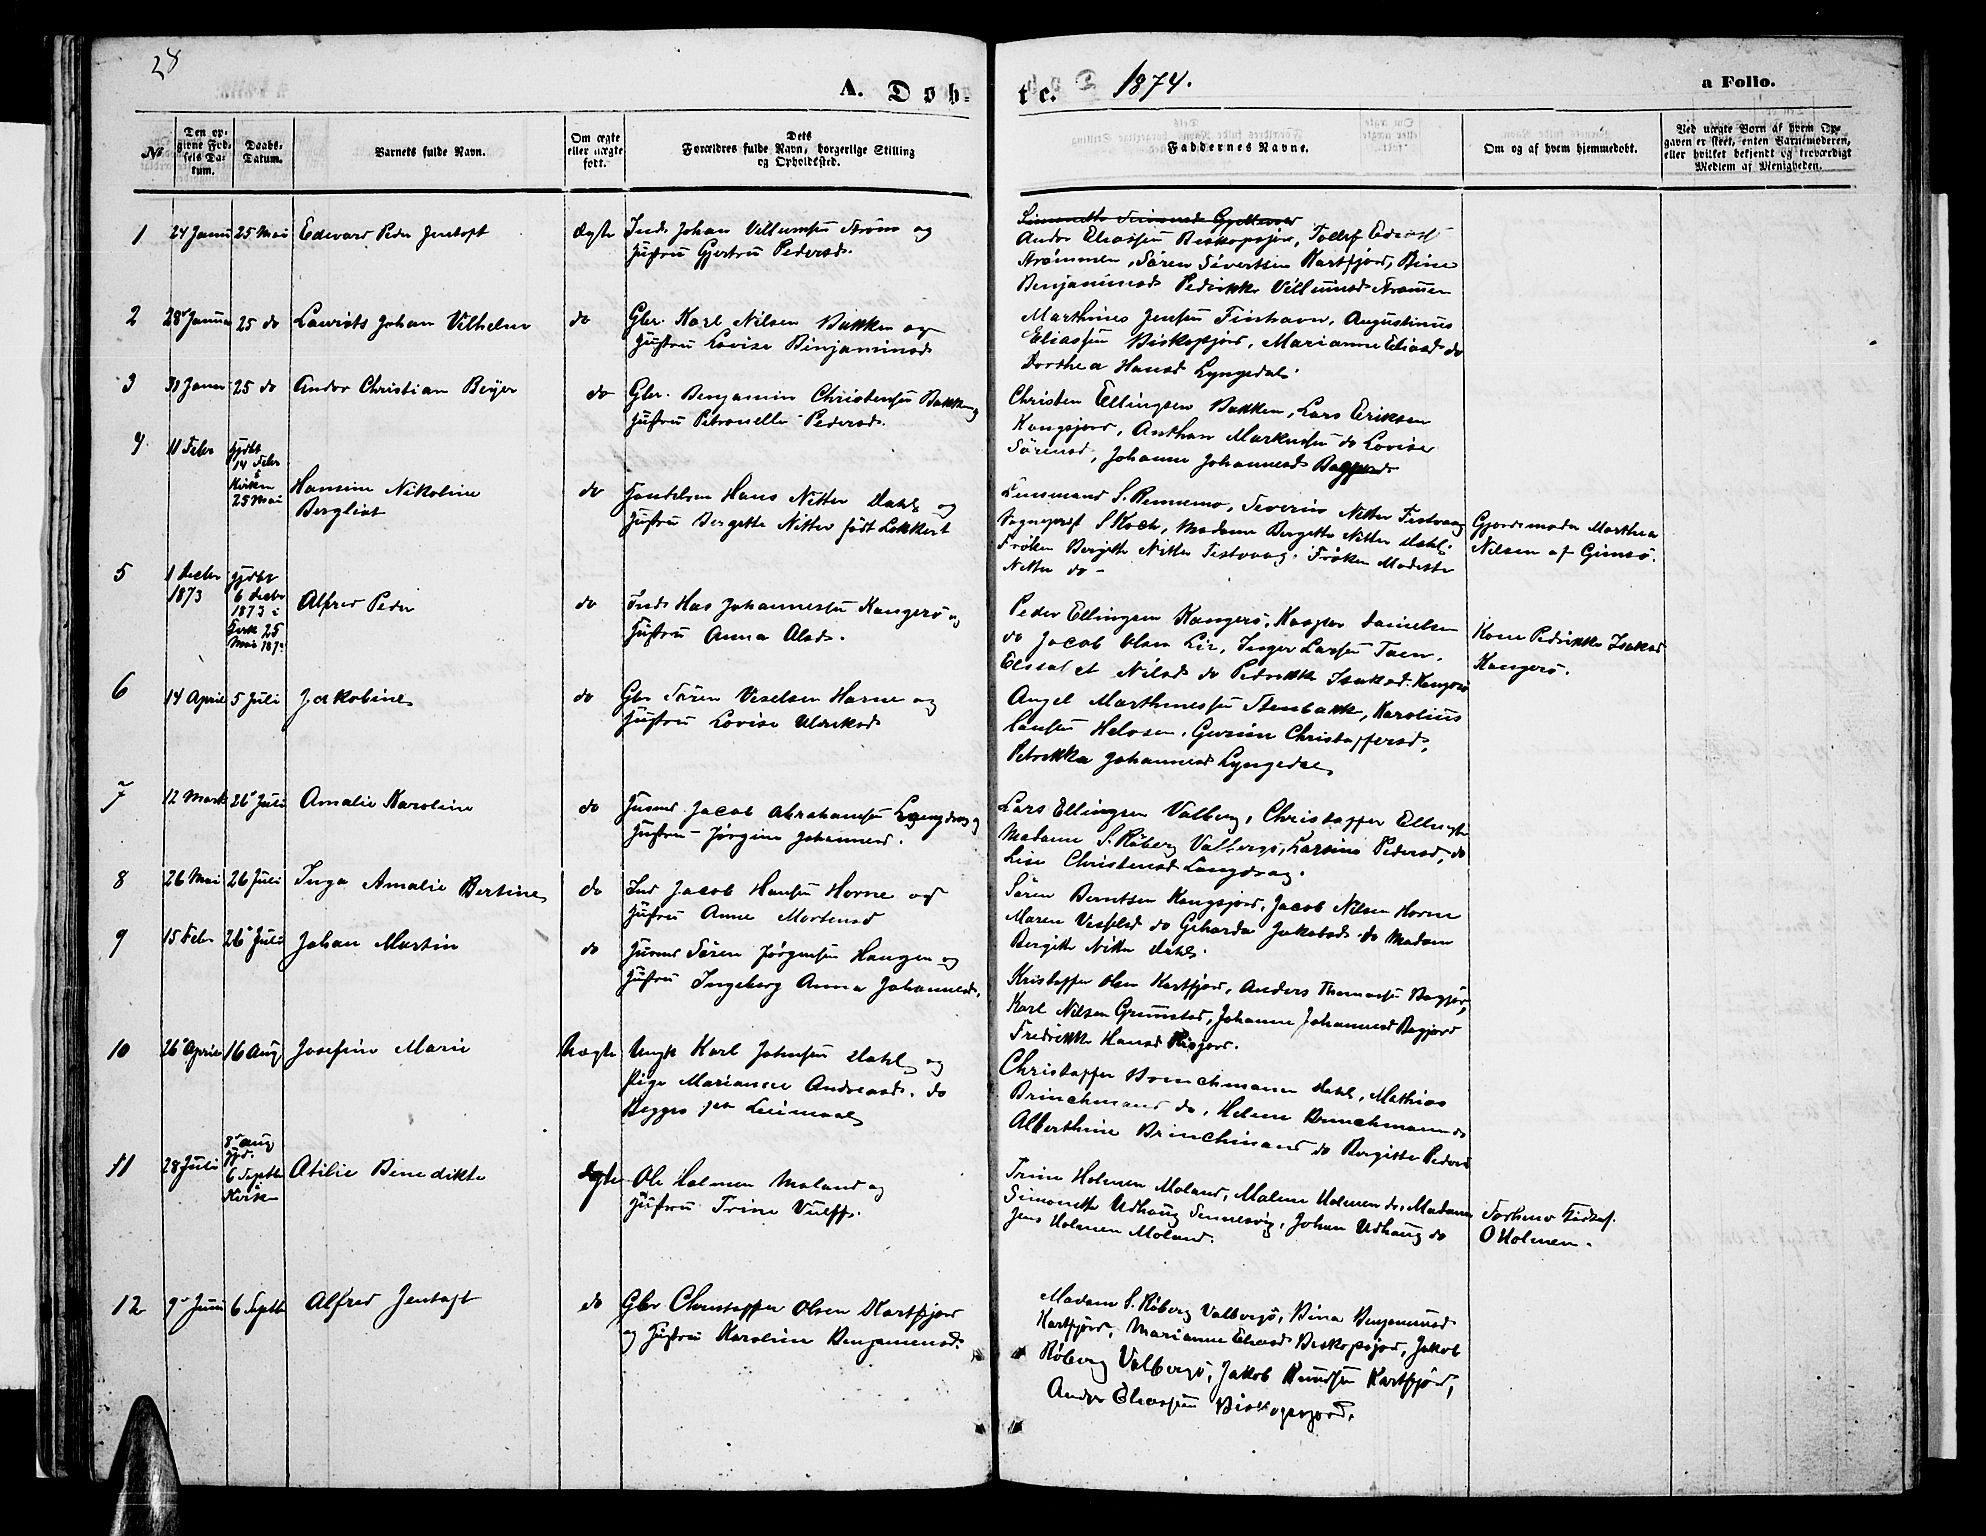 28
A. Døb-
te. 1874.
a Folio.
No
Den op-
givne Fød-
sels Da-
tum.
Daabs-
Datum.
Barnets fulde Navn.
Om ægte
eller uægte
født.
Dets
Forældres fulde Navn, borgerlige Stilling
og Opholdssted.
Faddernes Navne.
Om og af hvem hjemmedøbt.
Ved uægte Børn af hvem Op-
gaven er skeet, enten Barnemoderen,
eller hvilket bekjendt og troværdigt
Medlem af Menigheden.
1 24 Janu 25 Mai Edevard Peder Jentoft ægte Inds Johan Villumsen Strøm og
Hustru Gjertru Pedersd.
Simonette
Andor Eliassen Biskopsjor, Tollef
Strømmen, Søren Sivertsen Kartfjord, Bine
Benjaminsd Pedrikke Villumsd Strømen
2 28 Janua 25 do Laurits Johan Vilhelm do Gbr. Karl Nilsen Bakken og
Hustru Lovise Binjaminsd
Marthines Jensen Finhavn, Augustinus
Eliassen Biskopsjord, Marianne Eliasd do
Dorthea Hansd Lyngedal.
3 31 Janu 25 do Andor Christian Beyer do Gbr. Benjamin Christensen Bakken og
Hustru Petronelle Pedersd.
Christen Ellingsen Bakken, Lars Eriksen
Kongsjord, Anthon Markussen do Lovise
Sørensd, Johanne Johannesd
4 11 Febr hjdbt
14 Febr
i
Kirken
25 Mai
Hansine Nikoline
Bergliot
do Handelsm Hans Nitter Dahl og
Hustru Bergette Nitter født Lekkert
Lensmand S. Rennemo, Severin Nitter Festvaag
Sogneprest S Koch, Madame Bergette Nitter Dahl.
Frøken Bergitte Nitter Festvaag. Frøken Modeste
Nitter do -
Gjordemoder Marthea
Nilsen af Gimsø.
5 1 Decbr
1873
hjdbt
6 Decbr
1873 i
Kirk 25
Mai 187
Alfred Peder do Inds Has Johannessen Kangerø og
Hustru Anna Olsd.
Peder Ellingsen Kangerø, Kasper Danielsen
do Jacob Olsen Lie, Inger Larsen Toen.
Elisabet Nilsd do Pedrikke Isaksd Kangerø
Kone Pedrikke Isaksd
Kangerø.
6 14 April 5 Juli Jakobine do Gbr Søren Veselsen Horne og
Hustru Lovise Ulriksd
Angel Marthinessen Stenbakk, Karolius
Hansen Helosen, Gurine Christoffersd,
Petrikka Johannesd Lyngedal
7 12 Marts 26 Juli Amalie Karoline do Husmd Jacob Abrahamsen Langdrag og
Hustru - Jørgine Johannesd.
Lars Ellingsen Valberg, Christoffer Ellingsen
Madame S. Røberg Valbergs, Larsine Pedersd, do
Lise Christensd Langdrag.
8 26 Mai 26 Juli Inga Amalie Bertine do Ind Jacob Hansen Horne og
Hustru Anne Mortensd
Søren Berntsen Kangsjord, Jacob Nilsen Horne
Maren Vesselsd do Geharda Jakobsd do Madam
Bergitte Nitter Dahl.
9 15 Febr 26 Juli Johan Martin do Husmd Søren Jørgensen Haugen og
Hustru Ingeborg Anna Johannesd.
Kristoffer Olsen Kartfjord, Anders Thomassen Bagjor,
Karl Nilsen Grimstad, Johanne Johannesd Bagjord
Fredrikke Hansd
10 26 April 16 Aug Josefine Marie Uægte Ungk Karl Johnsen Dahl og
Pige Marianne Andreasd. do
Begges 1ste Leiermaal
Christoffer Brinchmann Dahl, Mathias
Brinchmand do, Helene Brinchmann do
Alberthine Brinchmand do Bergitte Pedersd
11 28 Juli 8 Aug
hjd.
6 Septb
Kirk
Otilie Benedikte Ægte Ole Holmen Moland og
Hustru Trine Vulff.
Trine Holmen Moland, Malene Holmen do, Madame
Simonette Udhaug Sennesvig, Johan Udhaug do
Jens Holmen Moland.
O Holmen.
12 9 Juni 6 Septb Alfred Jentoft do Gbr Christoffer Olsen Kartfjord
og Hustru Karoline Benjaminsd.
Madam S. Røberg Valbergs, Bina Benjaminsd
Kartfjord, Marianne Eliasd Biskopsjor, Jakob
Røberg Valbergs, Jakob Knudsen Kartfjord,
Andor Eliassen Biskopsjord.